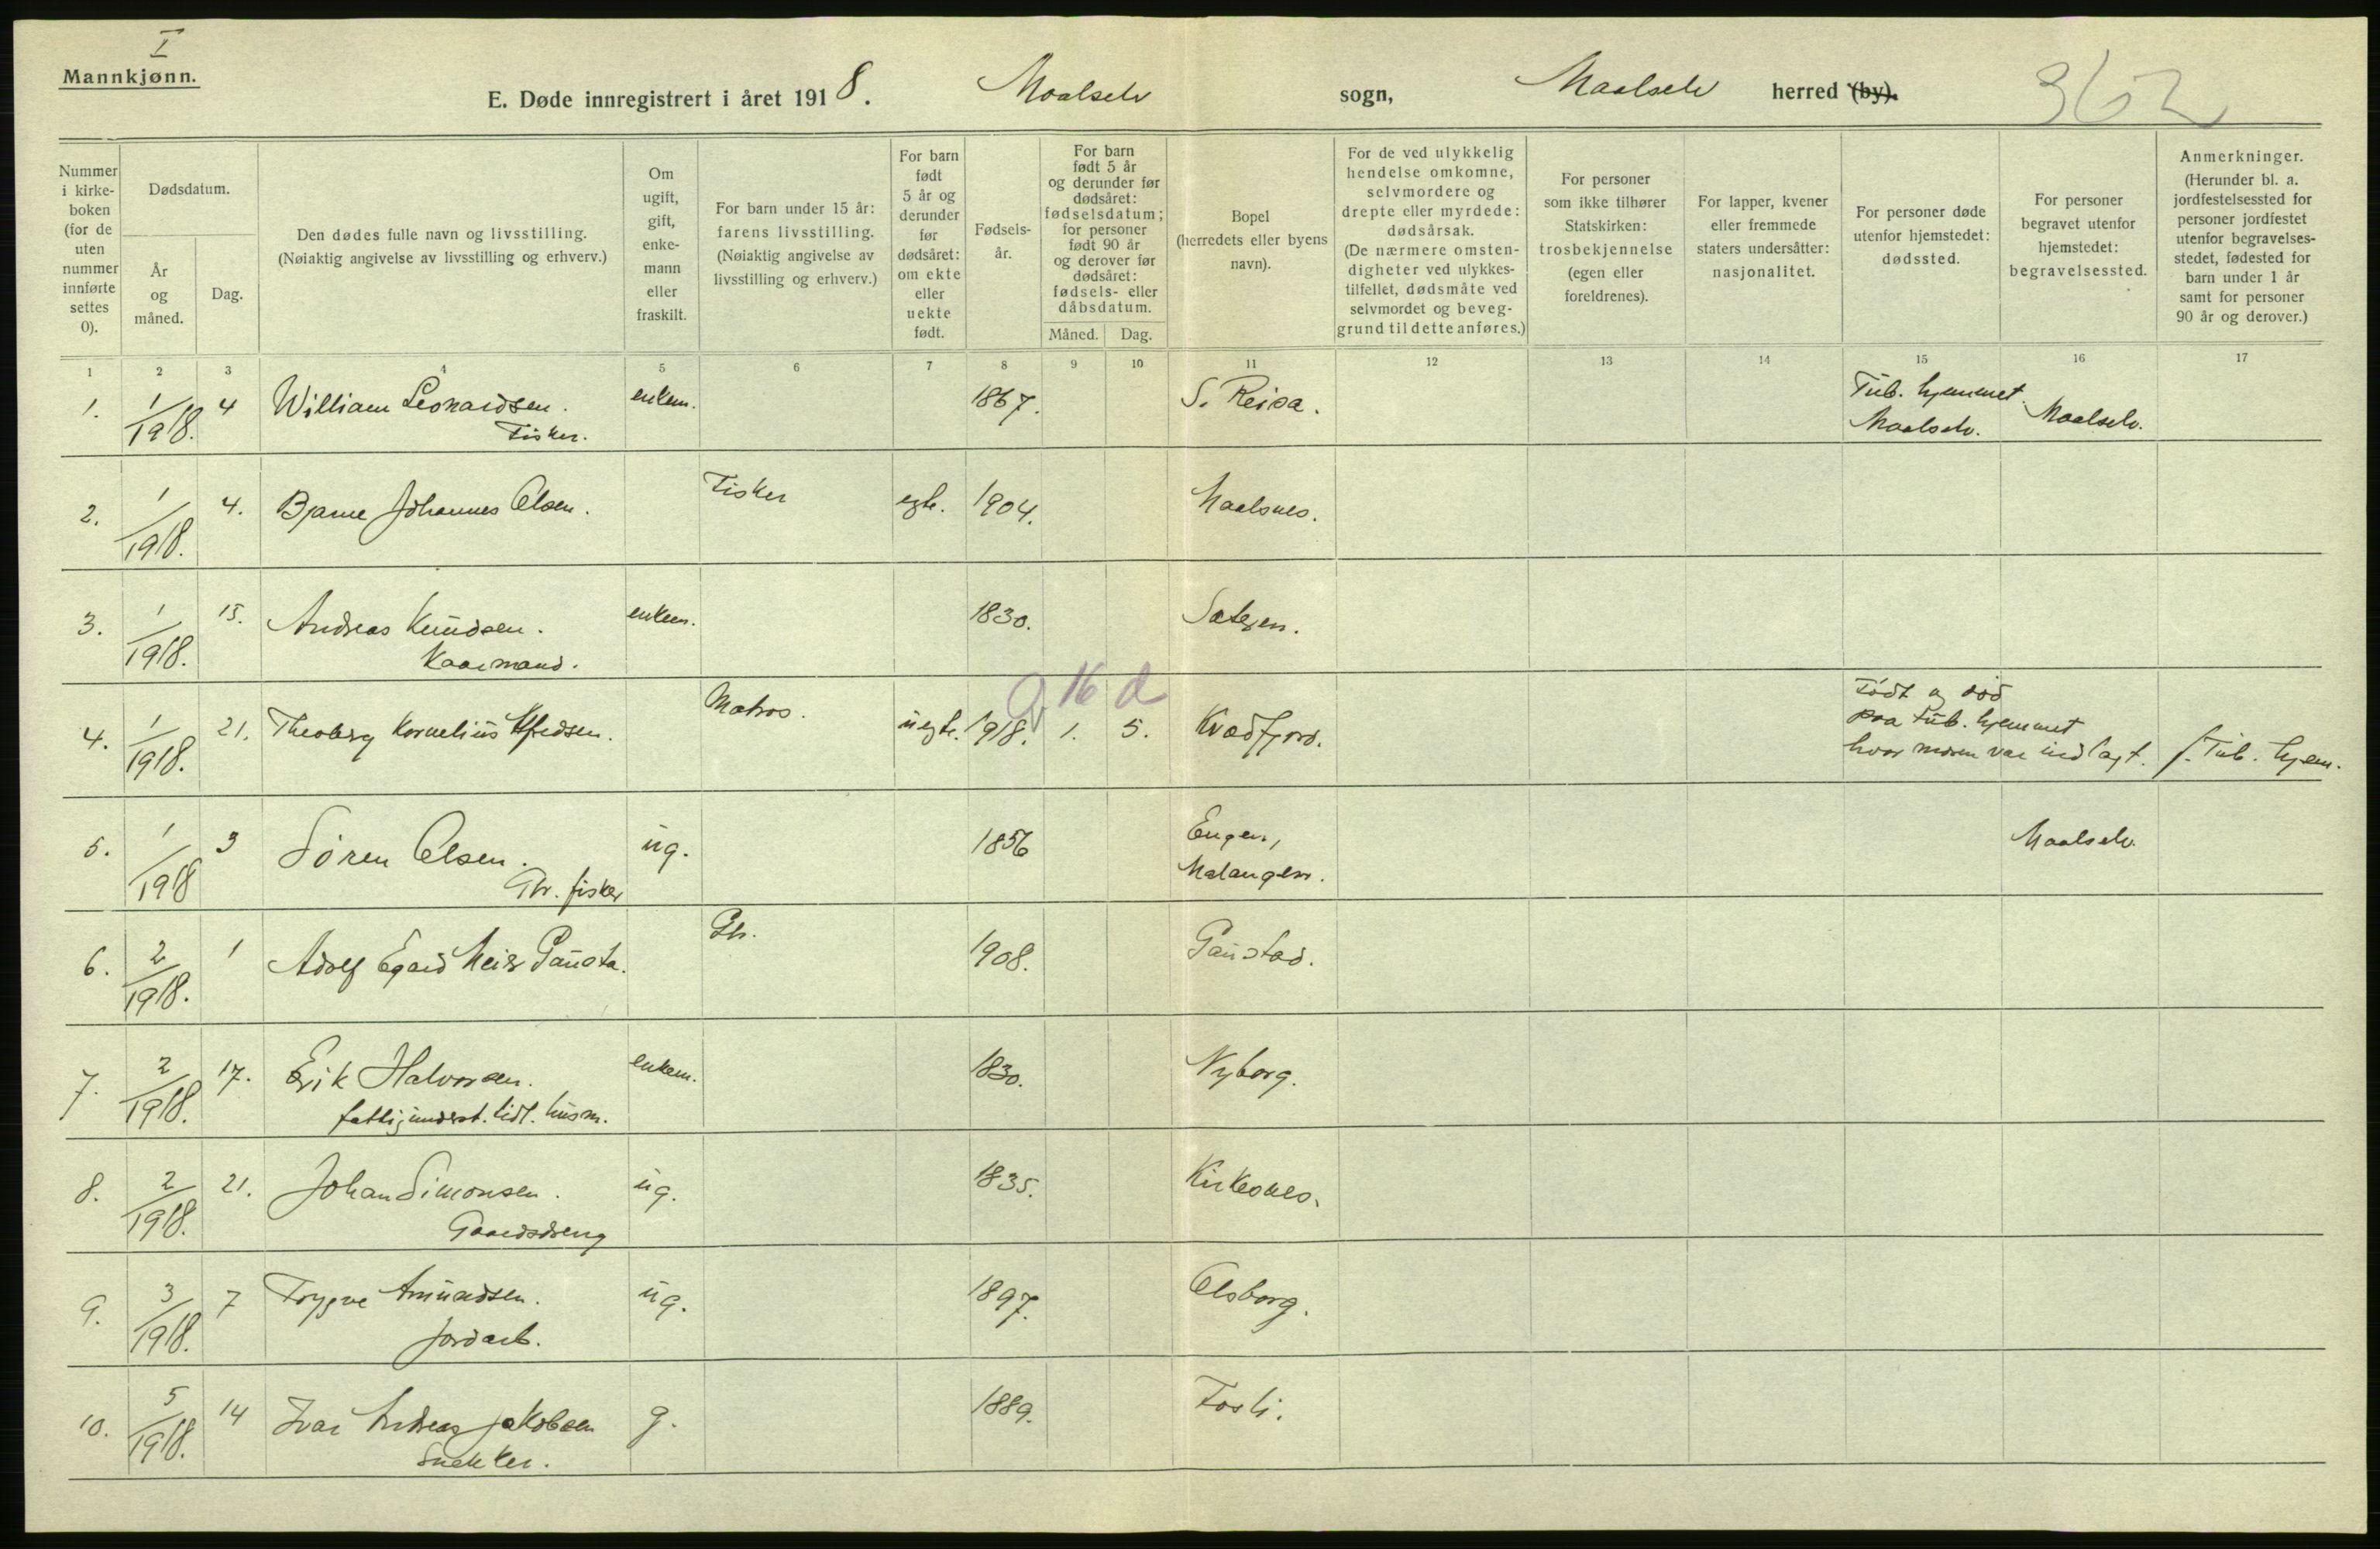 I
Mannkjønn.
E. Døde innregistrert i året 1918. Maalselv sogn, Maalselv herred (by). 362
Nummer i kirke-boken (for de uten nummer innførte settes 0).
Dødsdatum.
År og måned.
Dag.
Den dødes fulle navn og livsstilling.
(Nøiaktig angivelse av livsstilling og erhverv.)
Om ugift, gift, enke-mann eller fraskilt.
For barn under 15 år: farens livsstilling.
(Nøiaktig angivelse av livsstilling og erhverv.)
For barn født 5 år og derunder før dødsåret: om ekte eller uekte født.
Fødsels-år.
For barn født 5 år og derunder før dødsåret: fødselsdatum; for personer født 90 år og derover før dødsåret: fødsels- eller dåbsdatum.
Måned. Dag.
Bopel (herredets eller byens navn).
For de ved ulykkelig hendelse omkomne, selvmordere og drepte eller myrdede: dødsårsak.
(De nærmere omsten-digheter ved ulykkes-tilfellet, dødsmåte ved selvmordet og beveg-grund til dette anføres.)
For personer som ikke tilhører Statskirken: trosbekjennelse (egen eller foreldrenes).
For lapper, kvener eller fremmede staters undersåtter: nasjonalitet.
For personer døde utenfor hjemstedet: dødssted.
For personer begravet utenfor hjemstedet: begravelsessted.
Anmerkninger.
(Herunder bl. a. jordfestelsessted for personer jordfestet utenfor begravelses-stedet, fødested for barn under 1 år samt for personer 90 år og derover.)
1 2 3 4 5 6 7 8 9 10 11 12 13 14 15 16 17
1. 1/1918. 4 William Leonardsen. enkem. 1867. S. Reisa. Tub. hjemmet. Maalselv.
Fisker. Maalselv.
2. 1/1918. 4. Bjarne Johannes Olsen. Fisker egte. 1904. Maalsnes.
3. 1/1918. 15. Andreas Knudsen. enkem. 1830. Sætren.
Kaarmand.
0, 16 d
4. 1/1918. 21. Theoberg Kornelius Alfredsen. Matros. uegte. 1918. 1. 5. Kvædfjord. Født og død
paa tub. hjemmet
hvor moren var indlagt. f. Tub. hjem.
5. 1/1918 3 Sören Olsen. ug. 1856 Engen, Maalselv.
Gbr. fisker Malangen.
6. 2/1918. 1 Adolf Egard Meier Pausta. Gb. 1908. Paustad.
7. 2/1918. 17. Erik Halvorsen. enkem. 1830. Nyborg.
fattigunderst. tidl. husm.
8. 2/1918. 21. Johan Simonsen. ug. 1835. Kirkesnes.
Gaardsdreng
9. 3/1918. 7 Trygve Amundsen. ug. 1897. Olsborg.
jordarb.
10. 5/1918. 14 Ivar Andreas Jakobsen g. 1889. Fosli.
Snekker.